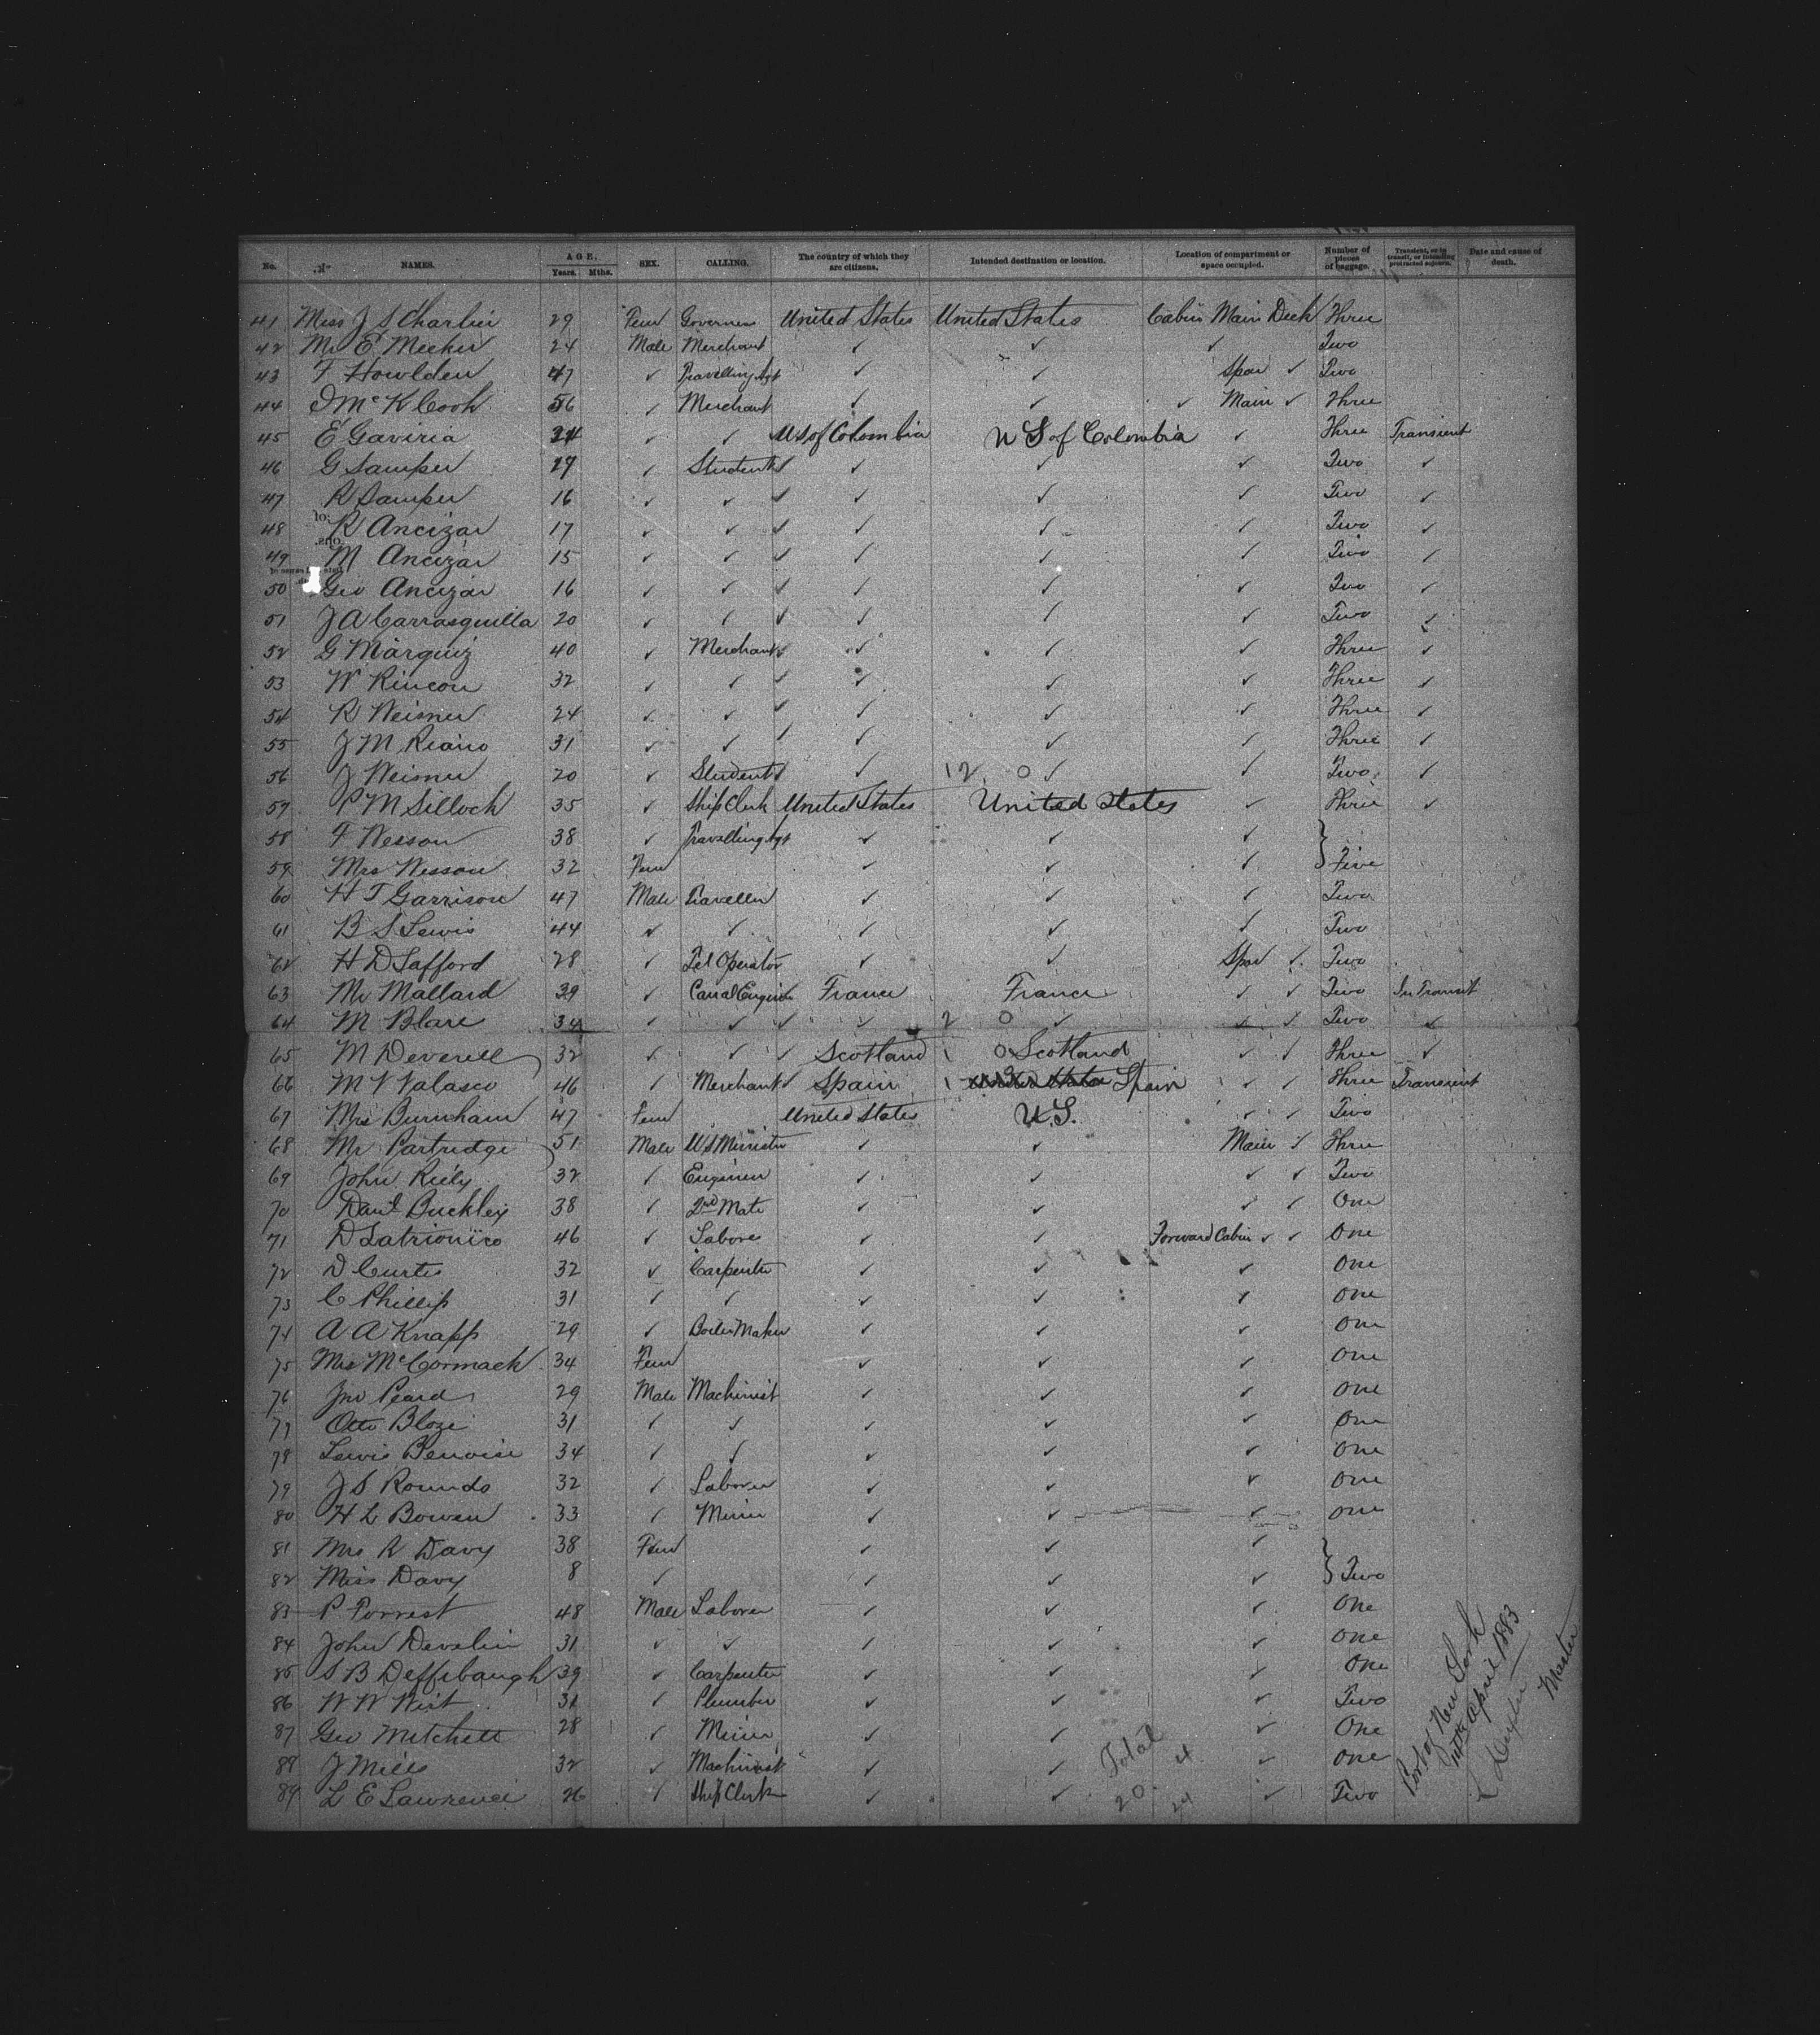 No. NAMES. AGE. Years. Mths. SEX. CALLING. The country of which they are citizens. Intended destination or location. Location of compartment or space occupied. Number of pieces of baggage. Transient, or in transit, or intending protracted sojourn. Date and cause of death.
41 Miss J S Charlier 29 Fem Governess United States United States Cabin Main Deck Three
42 Mr E Meeker 24 Male Merchant ✓ ✓ ✓ Two
43 F Howlden 47 ✓ Travelling Agt ✓ ✓ Spar ✓ Two
44 McK Cook 56 ✓ Merchant ✓ ✓ ✓ Main ✓ Three
45 E Gaviria ✓ ✓ U S of Colombia U S of Colombia ✓ Three Transient
46 G Samper 29 ✓ Student ✓ ✓ ✓ ✓ Two ✓
47 R Samper 16 ✓ ✓ ✓ ✓ ✓ ✓ Two ✓
48 R Ancizar 17 ✓ ✓ ✓ ✓ ✓ ✓ Two ✓
49 M Ancizar 15 ✓ ✓ ✓ ✓ ✓ ✓ Two ✓
50 Geo Ancizar 16 ✓ ✓ ✓ ✓ ✓ ✓ Two ✓
51 J A Carrasquilla 20 ✓ ✓ ✓ ✓ ✓ ✓ Two ✓
52 G Marquiz 40 ✓ Merchant ✓ ✓ ✓ ✓ Three ✓
53 W Rincon 32 ✓ ✓ ✓ ✓ ✓ ✓ Three ✓
54 R Weisner 24 ✓ ✓ ✓ ✓ ✓ ✓ Three ✓
55 J M Riano 31 ✓ ✓ ✓ ✓ ✓ ✓ Three ✓
56 J Weisner 20 ✓ Student ✓ ✓ 12 0 ✓ ✓ Two ✓
57 P M Silloch 35 ✓ Ship Clerk United States United States ✓ Three ✓
58 F Wesson 38 ✓ Travelling Agt ✓ ✓ ✓
59 Mrs Wesson 32 Fem ✓ ✓ ✓ Five
60 H T Garrison 47 Male Traveller ✓ ✓ ✓ Two
61 B S Lewis 44 ✓ ✓ ✓ ✓ ✓ Two
62 H D Safford 28 ✓ Tel Operator ✓ ✓ Spar ✓ Two
63 Mr Mallard 39 ✓ Canal Engineer France France ✓ ✓ Two In Transit
64 M Blare 34 ✓ ✓ ✓ ✓ 2 0 ✓ ✓ ✓ Two ✓
65 M Deverell 32 ✓ ✓ ✓ Scotland 1 0 Scotland ✓ ✓ Three ✓
66 M V Valasco 46 ✓ Merchant ✓ Spain 1 Spain ✓ ✓ Three Transient
67 Mrs Burnham 47 Fem United States U.S. ✓ ✓ Two
68 Mr Partridge 51 Male U S Minister ✓ ✓ Main ✓ Three
69 John Riely 32 ✓ Engineer ✓ ✓ ✓ ✓ Two
70 Danl Buckley 38 ✓ 2nd Mate ✓ ✓ ✓ ✓ One
71 D Latrionico 46 ✓ Laborer ✓ ✓ Forward Cabin ✓ ✓ One
72 D Curtis 32 ✓ Carpenter ✓ ✓ ✓ One
73 C Phillips 31 ✓ ✓ ✓ ✓ ✓ One
74 A A Knapp 29 ✓ Boiler Maker ✓ ✓ ✓ One
75 Mrs McCormack 34 Fem ✓ ✓ ✓ One
76 Jno Peard 29 Male Machinist ✓ ✓ ✓ One
77 Otto Bloze 31 ✓ ✓ ✓ ✓ ✓ One
78 Lewis Benoise 34 ✓ ✓ ✓ ✓ ✓ One
79 J S Rounds 32 ✓ Laborer ✓ ✓ ✓ One
80 H L Bowen 33 ✓ Miner ✓ ✓ ✓ One
81 Mrs R Davy 38 Fem ✓ ✓ ✓
82 Miss Davy 8 ✓ ✓ ✓ ✓ Two
83 P Forrest 48 Male Laborer ✓ ✓ ✓ One
84 John Develin 31 ✓ ✓ ✓ ✓ ✓ One
85 S B Deffibaugh 39 ✓ Carpenter ✓ ✓ ✓ One
86 W W West 31 ✓ Plumber ✓ ✓ ✓ Two
87 Geo Mitchell 28 ✓ Miner ✓ ✓ ✓ One
88 J Mills 32 ✓ Machinist ✓ ✓ ✓ One
89 L E Lawrence 26 ✓ Ship Clerk ✓ ✓ ✓ Two
Total
20 4
24
Port of New York
April 1883
Master